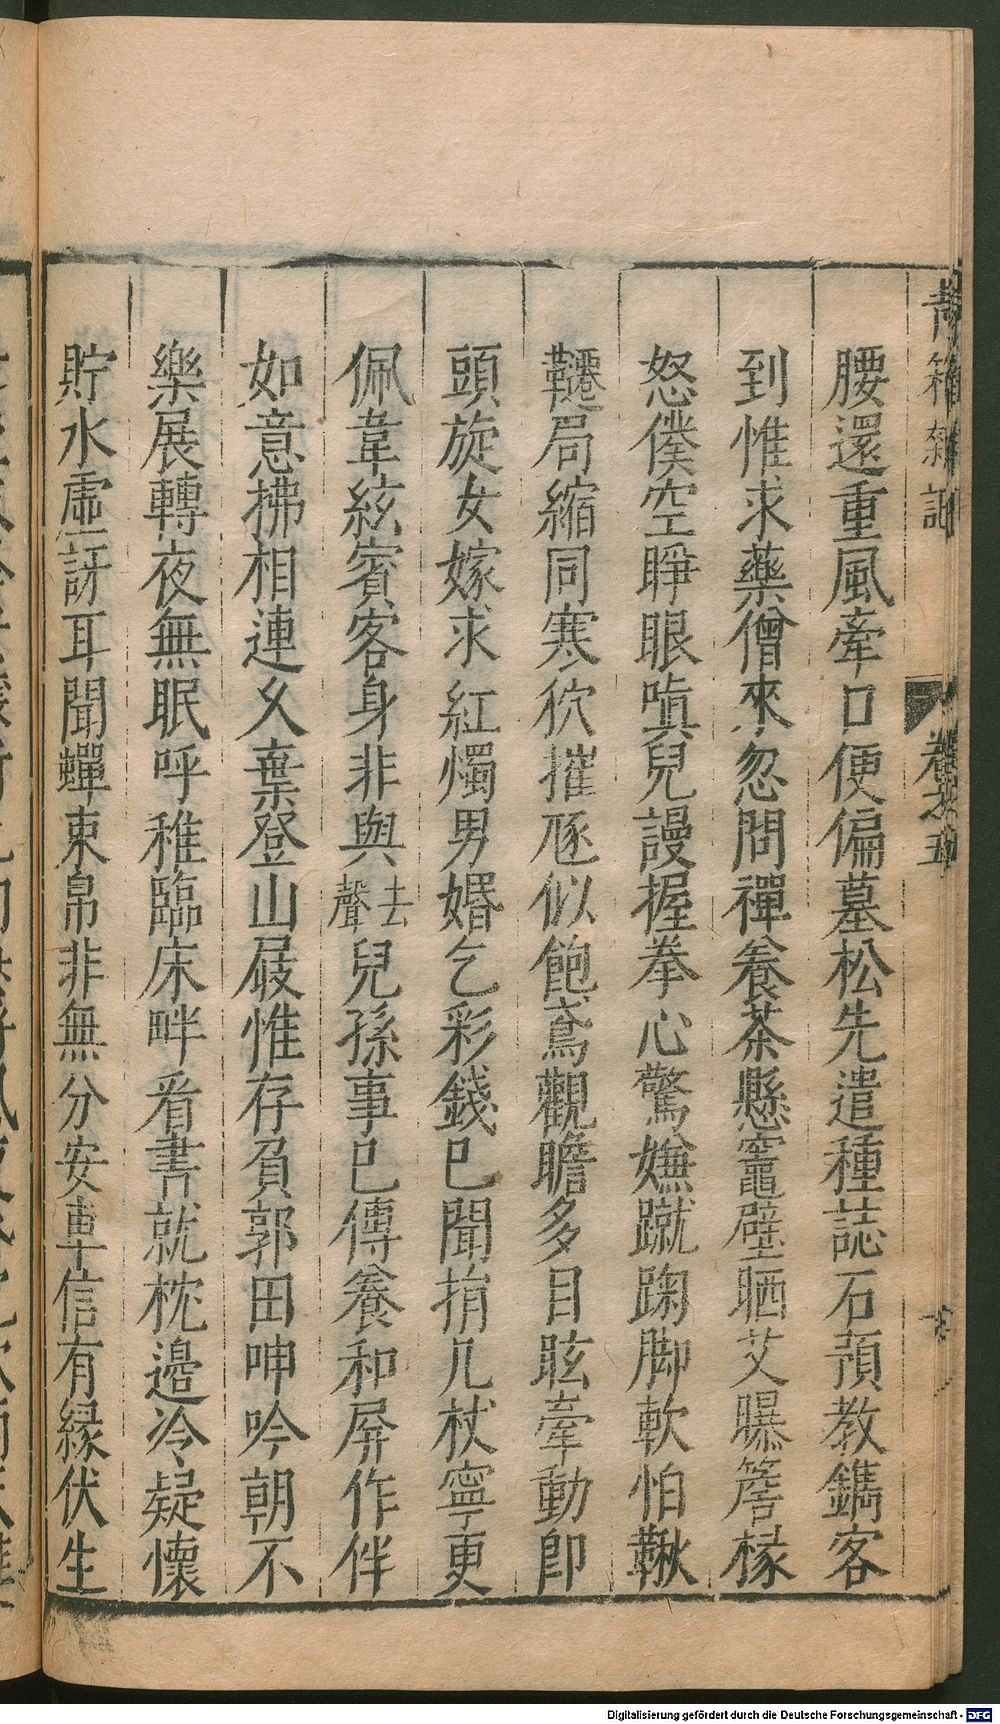 青箱雜記
卷之五
腰還重風牽口便偏墓松先遣種誌石預教鐫客
到惟求藥僧來忽問禪養茶懸竈壁晒艾曝簷椽
怒僕空睜眼嗔兒謾握拳心驚嫌蹴踘脚軟怕鞦
韆局縮同寒狖摧𢈪似飽鳶觀瞻多目眩牽動即
頭旋女嫁求紅燭男婚乞彩錢已聞捐几杖寧更
佩韋絃賓客身非與去聲兒孫事已傳養和屏作伴
如意拂相連久棄登山屐惟存負郭田呻吟朝不
樂展轉夜無眠呼稚臨床畔看書就枕邊冷疑懷
貯水虛訝耳聞蟬束帛非無分安車信有緣伏生
Digitalisierung gefördert durch die Deutsche Forschungsgemeinschaft - DFG